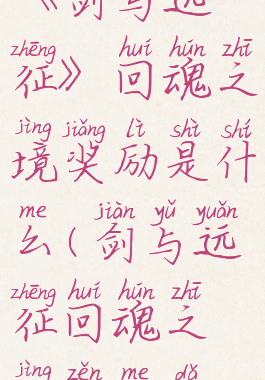 《剑与远
zhēng huí hún zhī
征》 回魂之
jìng jiǎng lì shì shí
境奖励是什
me jiàn yǔ yuǎn
么(剑与远
zhēng huí hún zhī
征回魂之
jìng zěn me dǎ